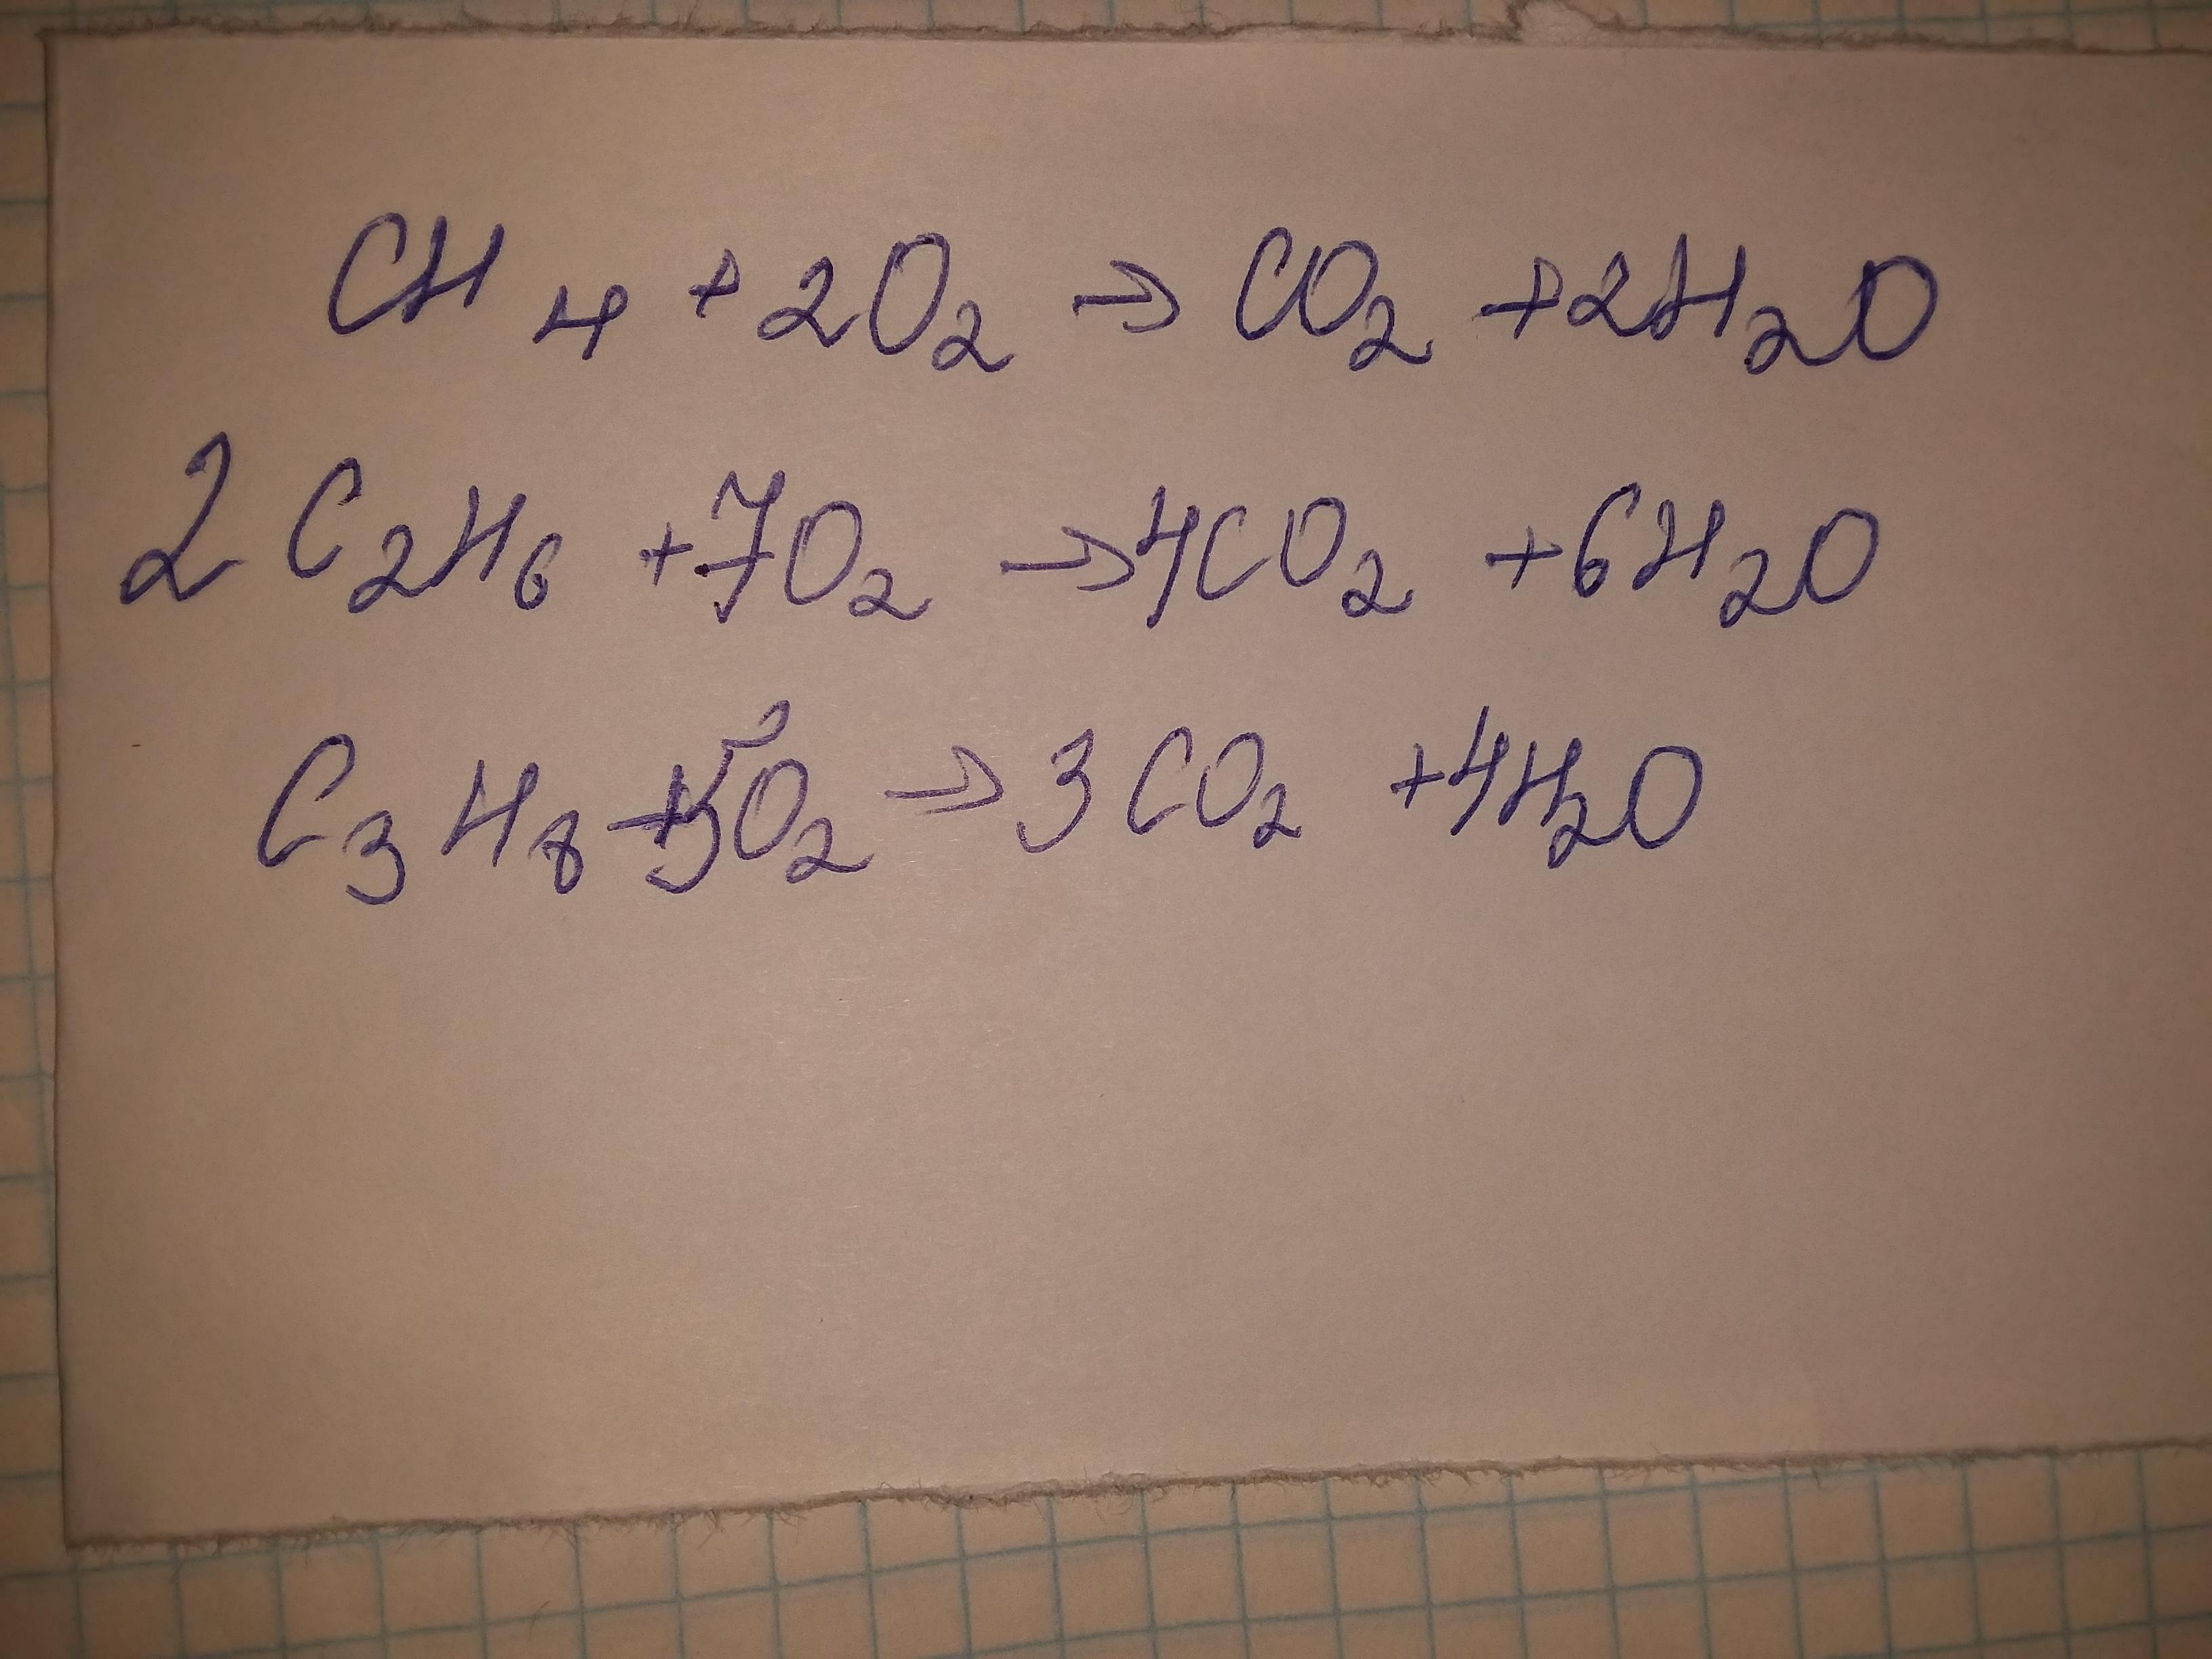 CH₄ + 2O₂ → CO₂ + 2H₂O
2 C₂H₆ + 7O₂ → 4CO₂ + 6H₂O
C₃H₈ + 5O₂ → 3CO₂ + 4H₂O